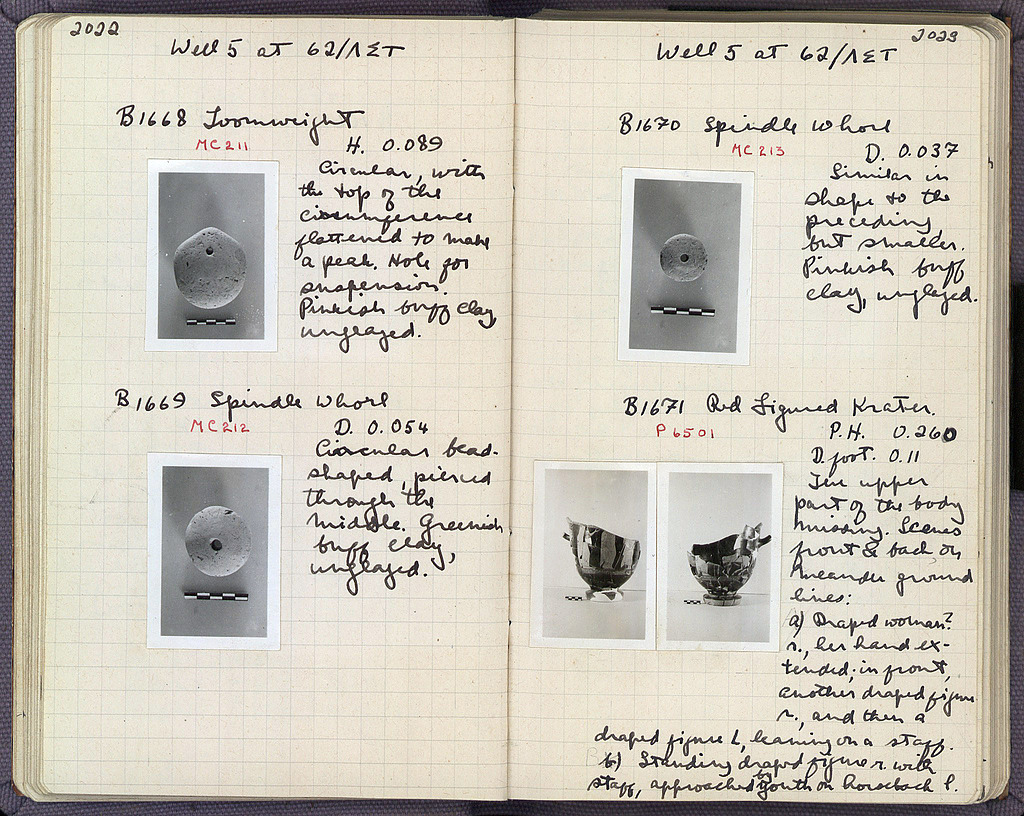 2022
Well 5 at 62/ΛΣΤ
B1668 Loomweight
MC 211
H. 0.089
Circular, with
the top of the
circumference
flattened to make
a peak. Hole for
suspension.
Pinkish buff clay,
unglazed.
B1669 Spindle Whorl
MC 212
D. 0.054
Circular bead-
shaped, pierced
through the
middle. Greenish
buff clay,
unglazed.
2023
Well 5 at 62/ΛΣΤ
B1670 Spindle Whorl
MC 213
D. 0.037
Similar in
shape to the
preceding,
but smaller.
Pinkish buff
clay, unglazed.
B1671 Red Figured Krater.
P 6501
P.H. 0.260
D. foot. 0.11
The upper
part of the body
missing. Scenes
front & back on
meander ground
lines:
a) Draped woman?
r., her hand ex-
tended; in front,
another draped figure
r., and then a
draped figure l, leaning on a staff.
b) Standing draped figure r. with
staff, approached by youth on horseback l.